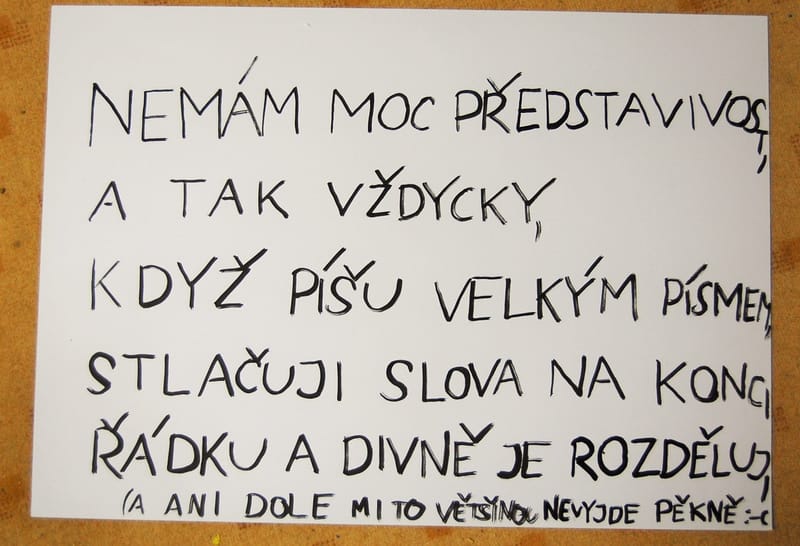 NEMÁM MOC PŘEDSTAVIVOST,
A TAK VŽDYCKY,
KDYŽ PÍŠU VELKÝM PÍSMEM,
STLAČUJI SLOVA NA KONCI
ŘÁDKU A DIVNĚ JE ROZDĚLUJI,
(A ANI DOLE MI TO VĚTŠINOU NEVYJDE PĚKNĚ :-(